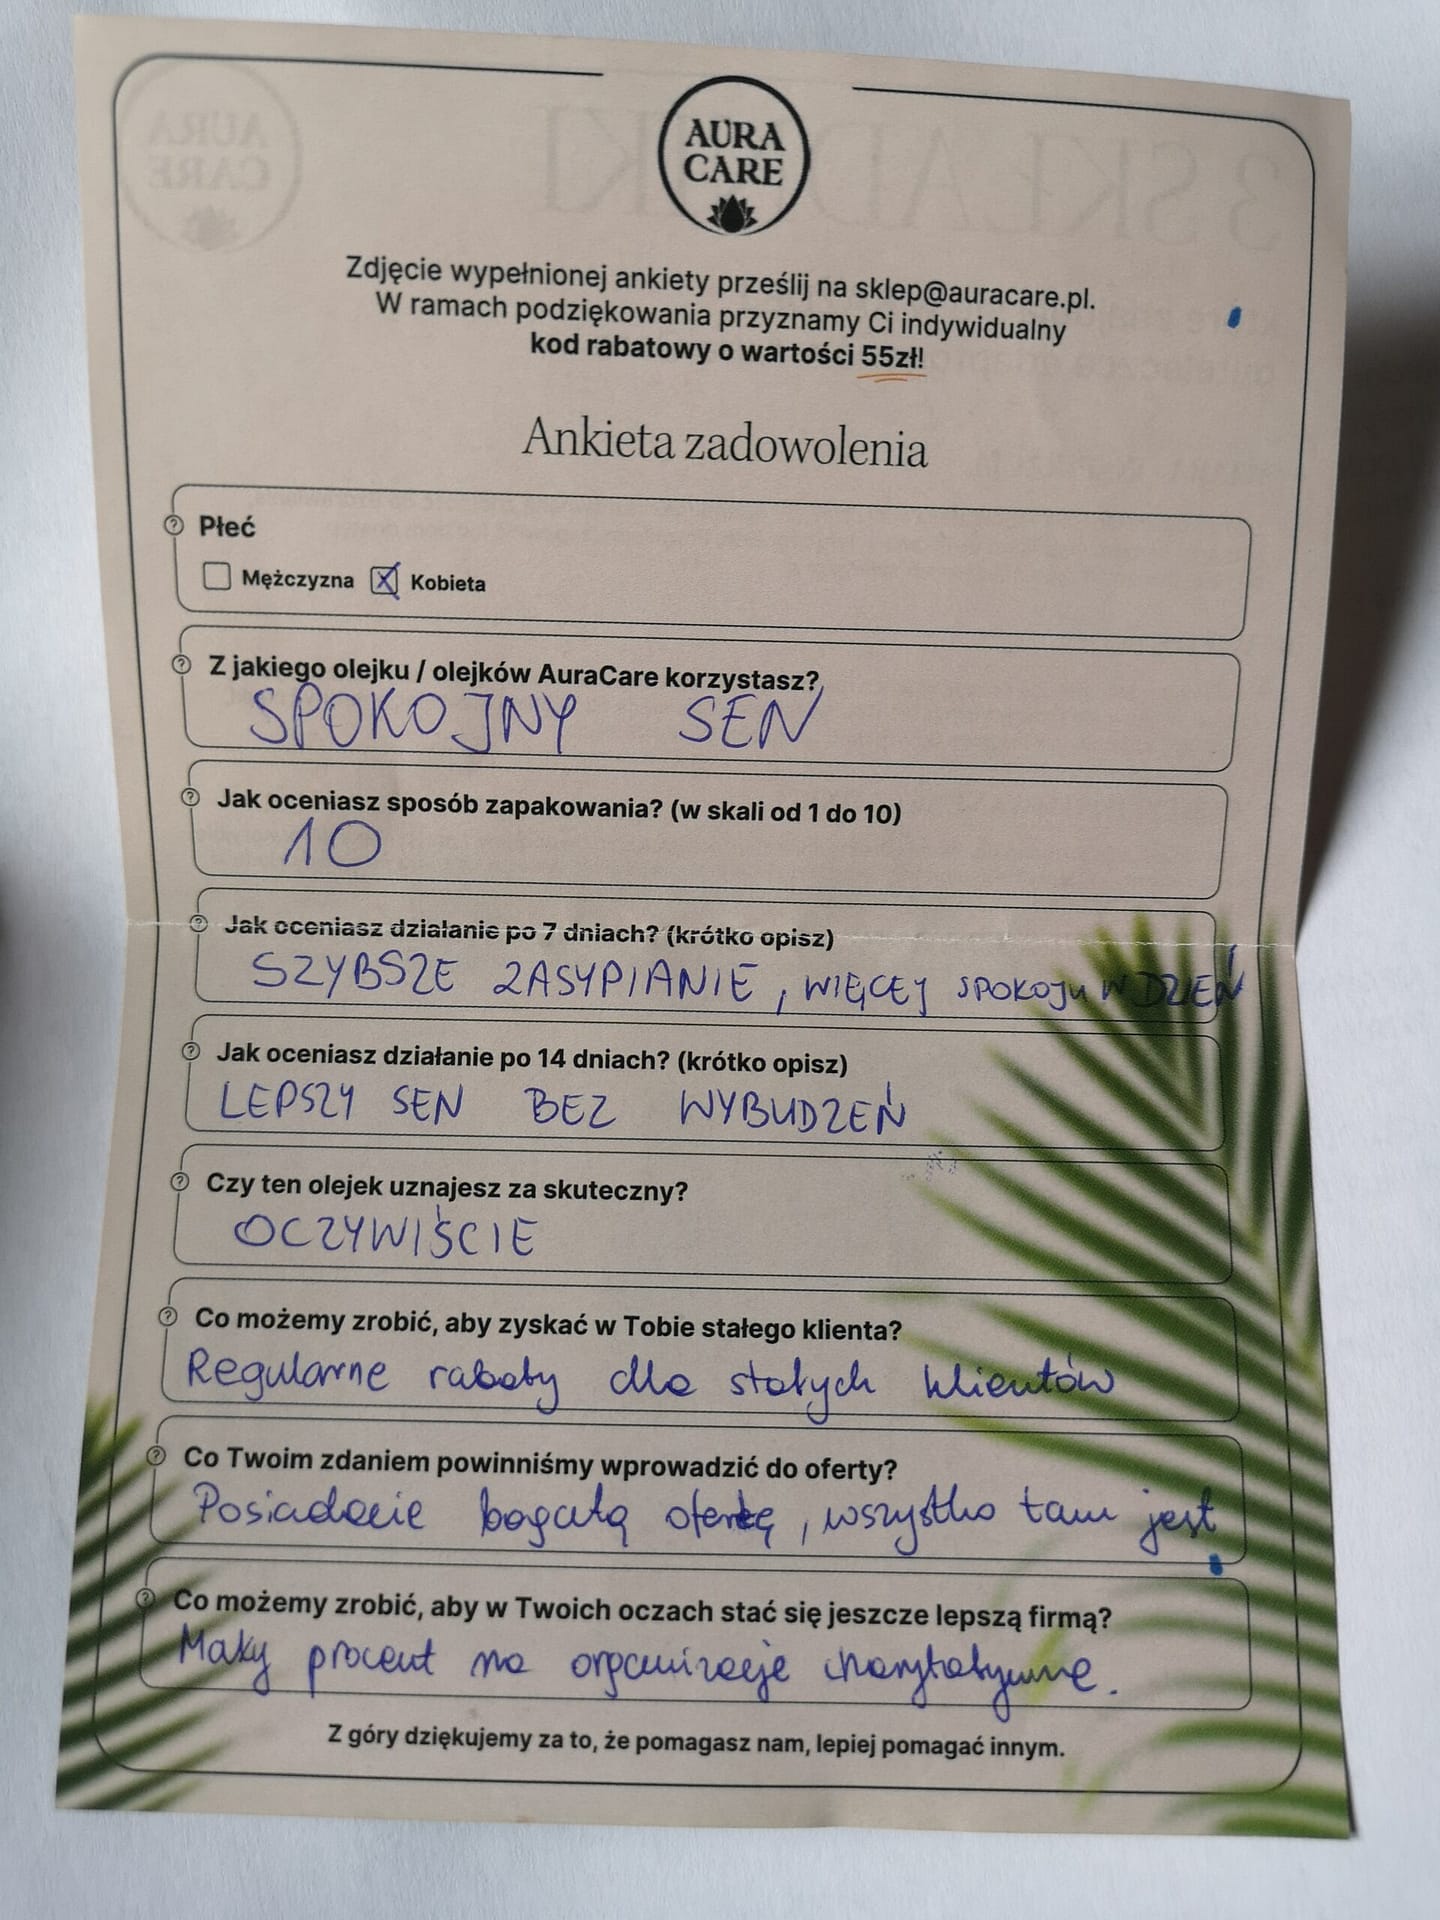 AURA
CARE
Zdjęcie wypełnionej ankiety prześlij na sklep@auracare.pl.
W ramach podziękowania przyznamy Ci indywidualny
kod rabatowy o wartości 55zł!
Ankieta zadowolenia
Płeć
Mężczyzna Kobieta
Z jakiego olejku / olejków AuraCare korzystasz?
SPOKOJNY SEN
Jak oceniasz sposób zapakowania? (w skali od 1 do 10)
10
Jak oceniasz działanie po 7 dniach? (krótko opisz)
SZYBSZE ZASYPIANIE, WIĘCEJ SPOKOJU W DZIEŃ
Jak oceniasz działanie po 14 dniach? (krótko opisz)
LEPSZY SEN BEZ WYBUDZEŃ
Czy ten olejek uznajesz za skuteczny?
OCZYWIŚCIE
Co możemy zrobić, aby zyskać w Tobie stałego klienta?
Regularne rabaty dla stałych klientów
Co Twoim zdaniem powinniśmy wprowadzić do oferty?
Posiadacie bogatą ofertę, wszystko tam jest
Co możemy zrobić, aby w Twoich oczach stać się jeszcze lepszą firmą?
Mały procent na organizacje charytatywne.
Z góry dziękujemy za to, że pomagasz nam, lepiej pomagać innym.